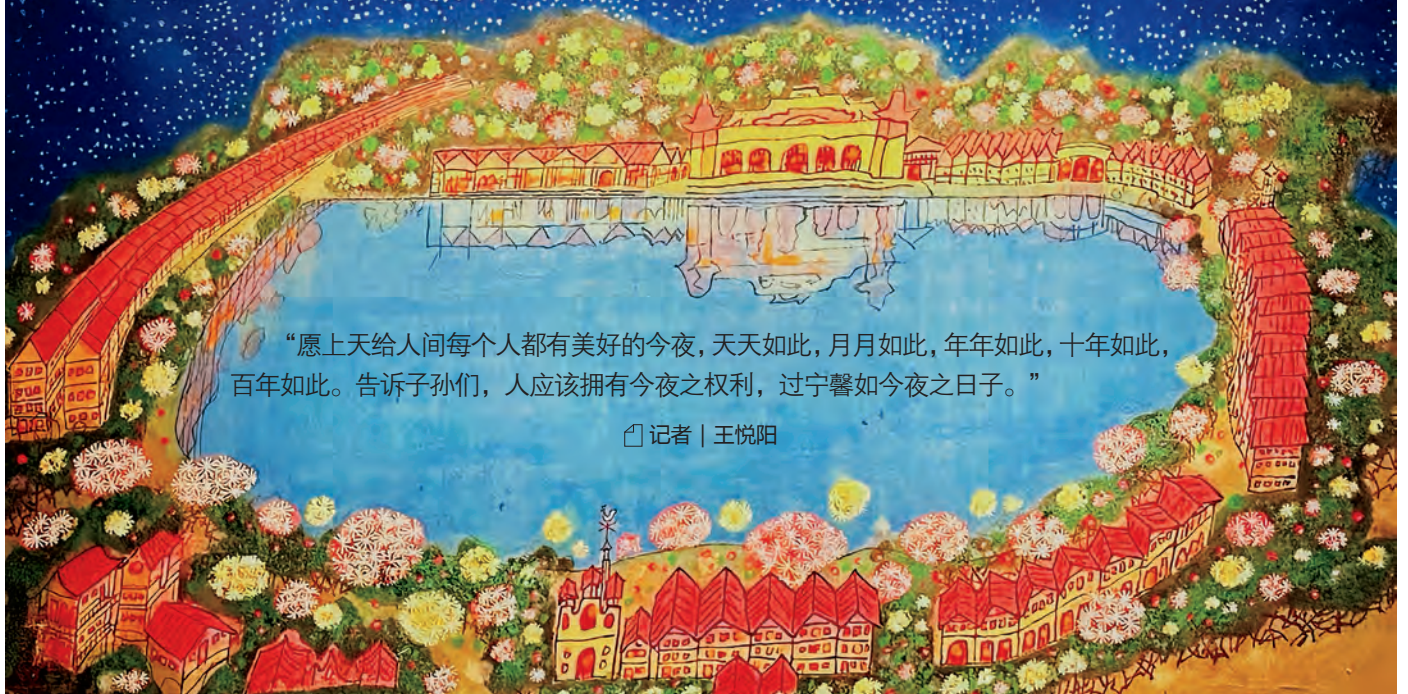 “愿上天给人间每个人都有美好的今夜，天天如此，月月如此，年年如此，十年如此，
百年如此。告诉子孙们，人应该拥有今夜之权利，过宁馨如今夜之日子。”
记者｜王悦阳